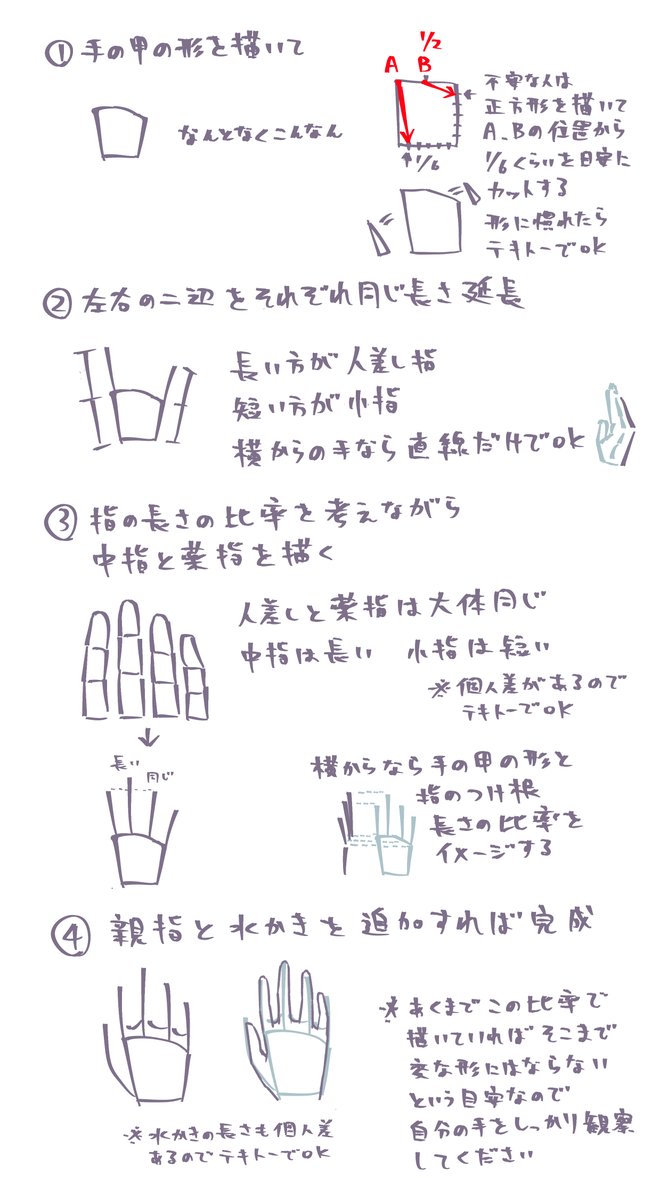 ① 手の甲の形を描いて
なんとなくこんなん
1/2
A B
1/6
不安な人は
正方形を描いて
A、Bの位置から
1/6くらいを目安に
カットする
形に慣れたら
テキトーでOK
② 左右の二辺をそれぞれ同じ長さ延長
長い方が人差し指
短い方が小指
横からの手なら直線だけでOK
③ 指の長さの比率を考えながら
中指と薬指を描く
人差しと薬指は大体同じ
中指は長い 小指は短い
※個人差があるので
テキトーでOK
長い
同じ
横からなら手の甲の形と
指のつけ根
長さの比率を
イメージする
④ 親指と水かきを追加すれば完成
※水かきの長さも個人差
あるのでテキトーでOK
※あくまでこの比率で
描いていればそこまで
変な形にはならない
という目安なので
自分の手をしっかり観察
してください